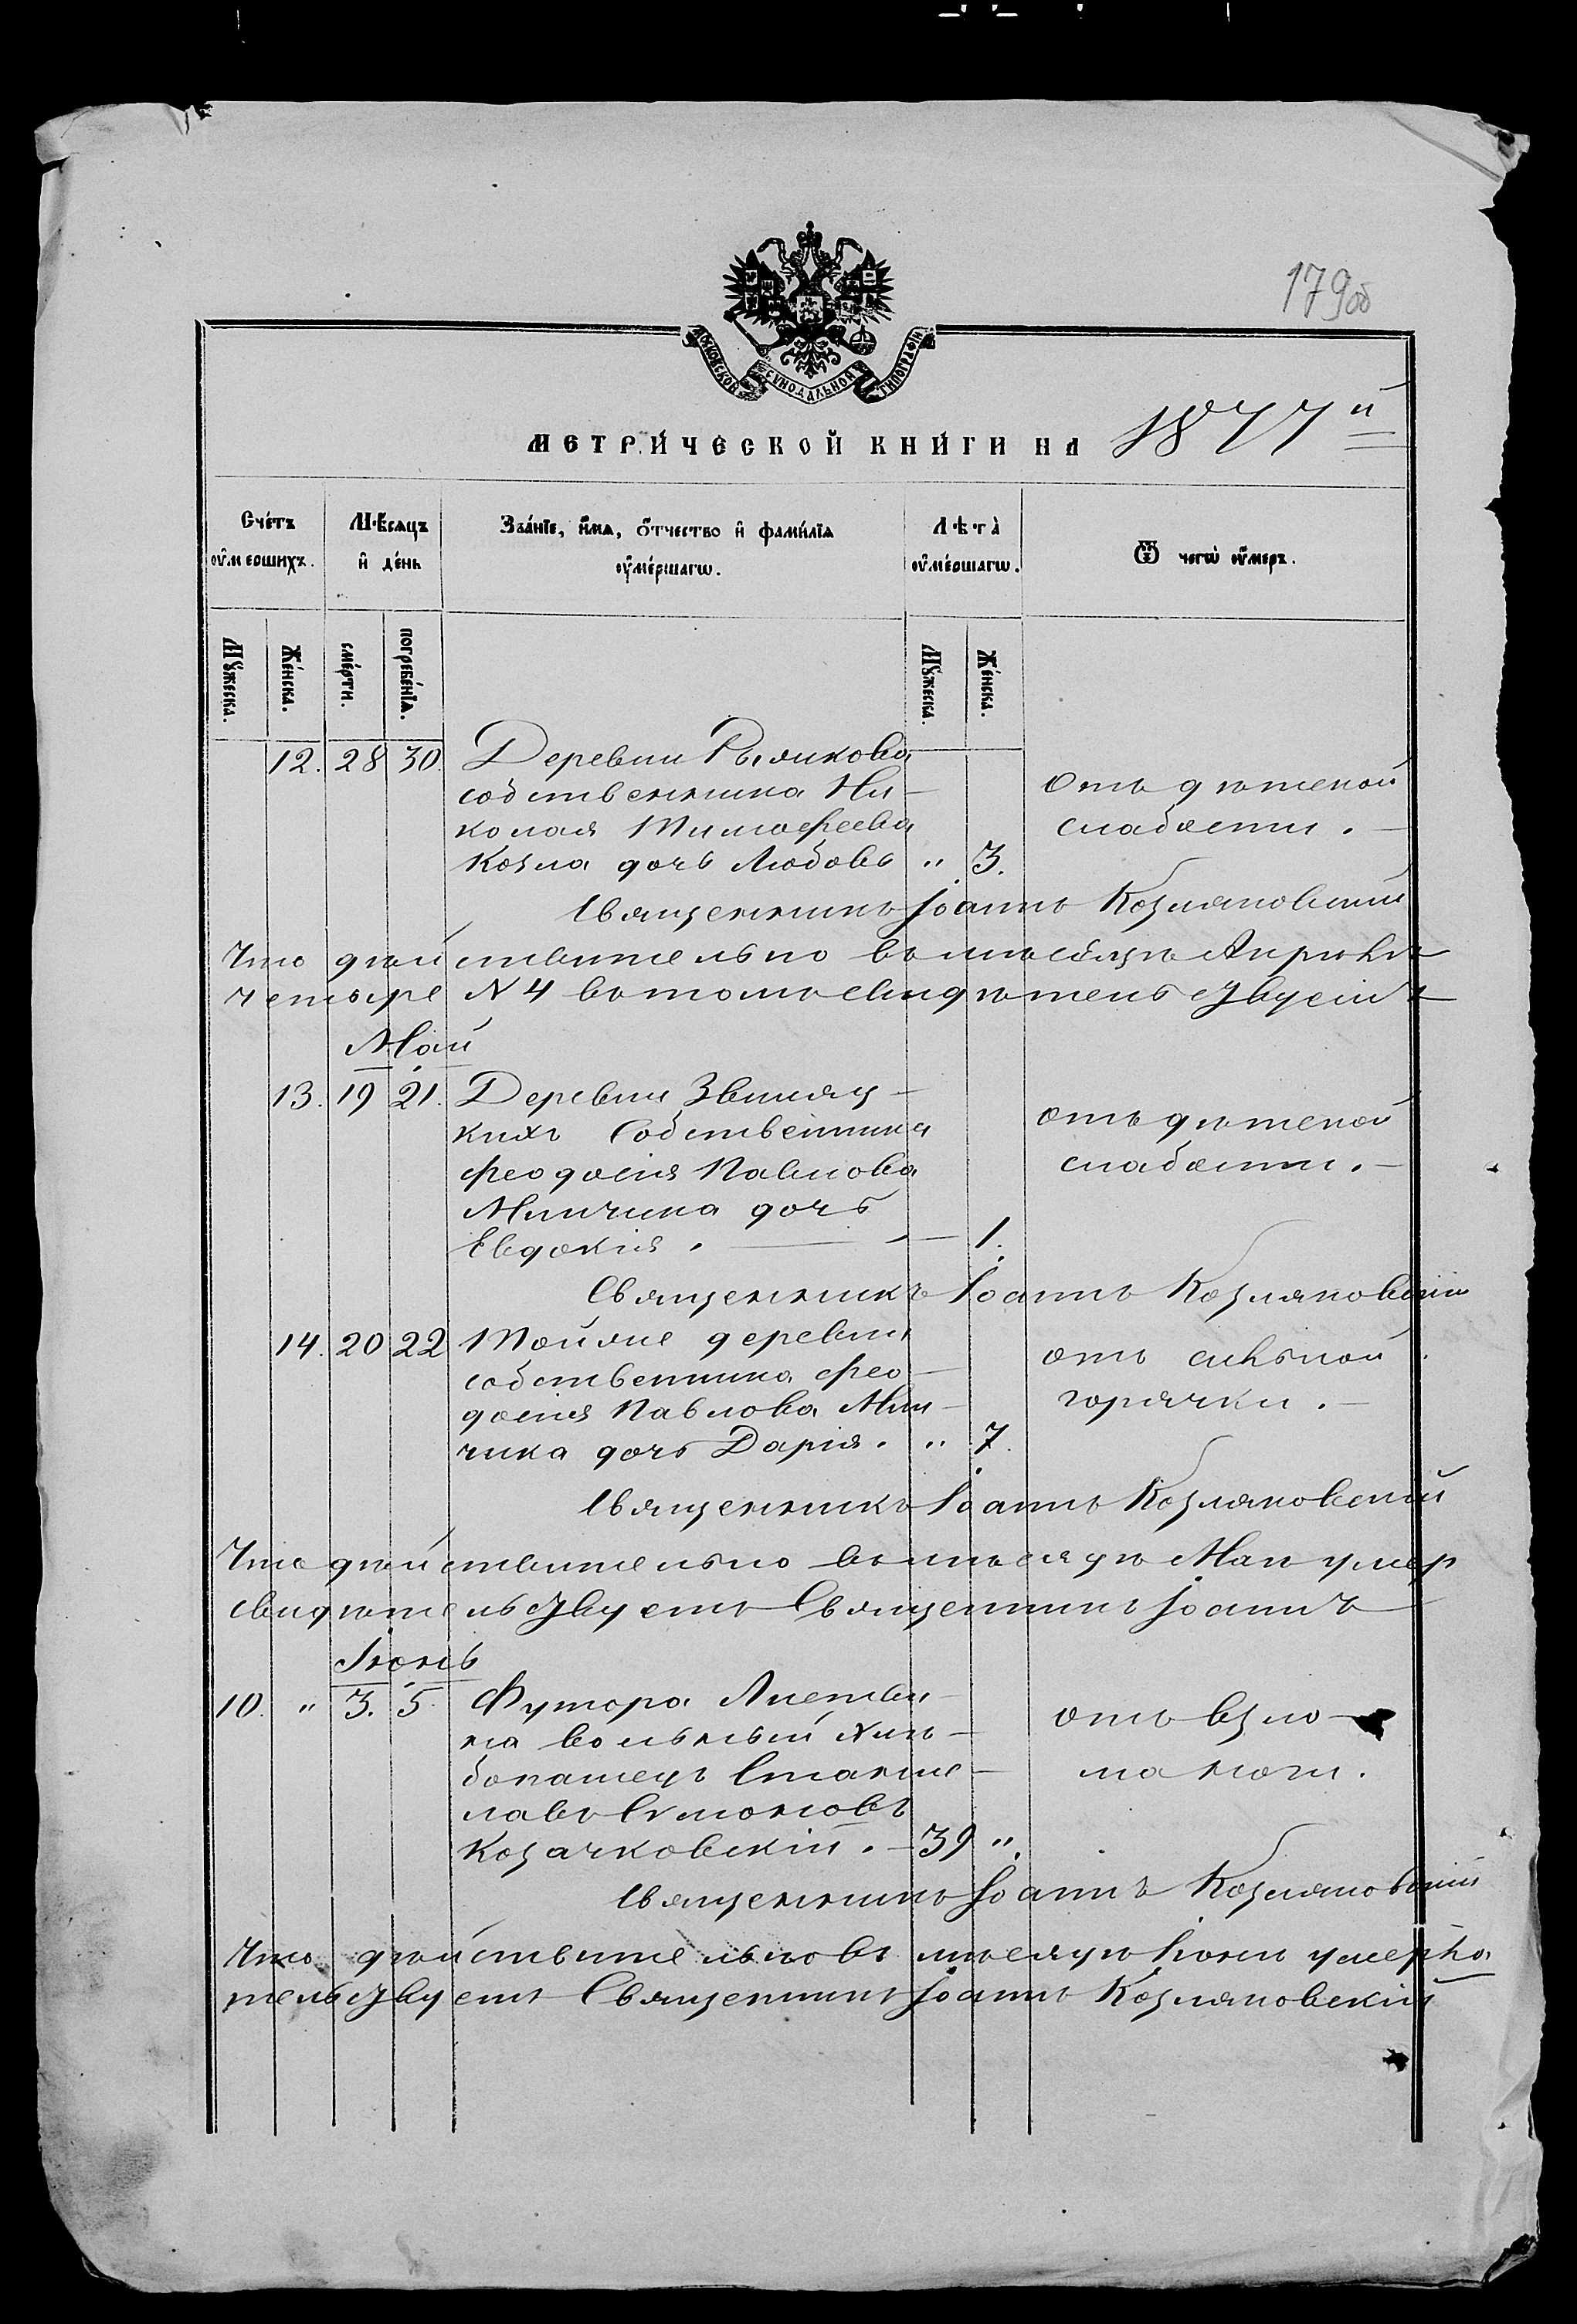 179об
МОСКОВСКОЙ СѴНОДАЛЬНОЙ ТИПОГРАФІИ
МЕТРИЧЕСКОЙ КНИГИ НА 1877й
Счетъ оумершихъ.
Мѣсяцъ и день
Званіе, имя, отчество и фамилія оумершагѡ.
Лѣта оумершагѡ.
Ѿ чегѡ оумеръ.
Мꙋжеска.
Женска.
смерти.
погребенія.
Мꙋжеска.
Женска.
12. 28 30. Деревни
собственника Ни-
колая Тимофеева
Козла дочь Любовь " 3.
Отъ дѣтской
слабости.
Священникъ Іоаннъ Козляковскій
Что дѣйствительно въ мѣсяцѣ Апрѣлѣ
четыре N 4 въ томъ свидѣтельствуетъ
Май
13. 19 21. Деревни Звиняц-
кихъ Собственника
Феодосія Павлова
Минчика дочь
Евдокія. — 1.
отъ дѣтской
слабости.
Священникъ Іоаннъ Козляковскій
14. 20 22 Той же деревни
собственника Фео-
досія Павлова Мин-
чика дочь Дарія. " 7.
отъ сильной
горячки.
Священникъ Іоаннъ Козляковскій
Что дѣйствительно въ мѣсяцѣ Маѣ умер
свидѣтельствуетъ Священникъ Іоаннъ
Іюнь
10. " 3. 5. Футора
на вольный хлѣ-
бопашецъ Стани-
лавъ Симоновъ
Козачковскій. — 39 ".
отъ взло-
ма ноги.
Священникъ Іоаннъ Козляковскій
Что дѣйствительно въ мѣсяцѣ Іюнѣ
тельствуетъ Священникъ Іоаннъ Козляковскій